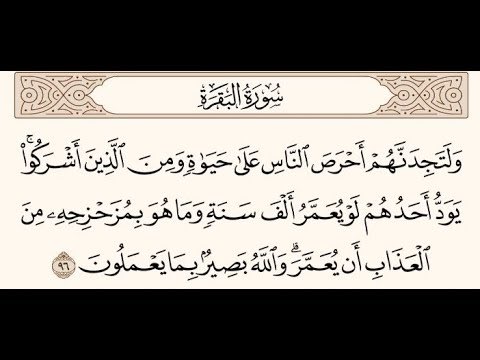 سُورَةُ البَقَرَةِ
وَلَتَجِدَنَّهُمْ أَحْرَصَ النَّاسِ عَلَىٰ حَيَوٰةٍ وَمِنَ الَّذِينَ أَشْرَكُوا۟ ۚ
يَوَدُّ أَحَدُهُمْ لَوْ يُعَمَّرُ أَلْفَ سَنَةٍ وَمَا هُوَ بِمُزَحْزِحِهِۦ مِنَ
الْعَذَابِ أَن يُعَمَّرَ ۗ وَاللَّهُ بَصِيرٌۢ بِمَا يَعْمَلُونَ ٩٦